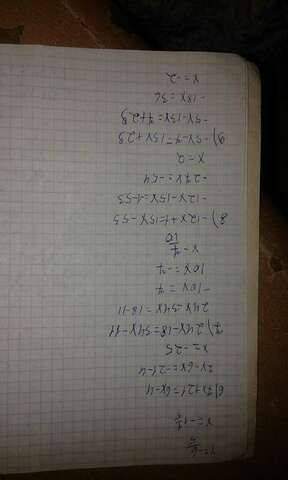 6) 7x+21=6x-4
7x-6x=-21-4
x=-25
7) 24x-18=34x-11
24x-34x=18-11
-10x=7
10x=-7
x-7/10
8) -12x+1=15x-53
-12x-15x=-1-53
-27x=-54
x-2
9) -5x-7=13x+29
-5x-13x=7+29
-18x=36
x=-2